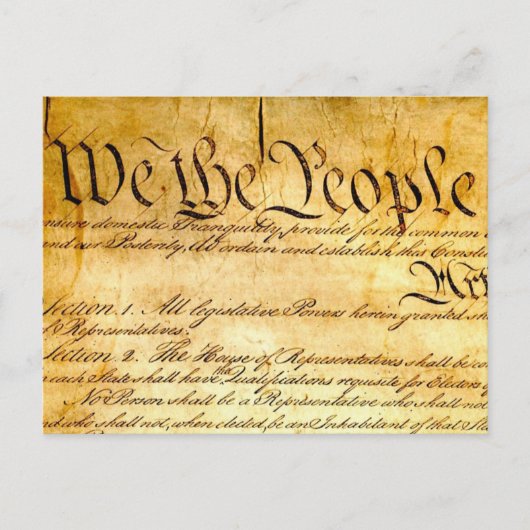 We the People
nsure domestic Tranquility, provide for the common
nd our Posterity, do ordain and establish this Consti
Art
Section 1. All legislative Powers herein granted sh
f Representatives.
Section 2. The House of Representatives shall be co
n each State shall have the Qualifications requisite for Electors o
No Person shall be a Representative who shall not
nd who shall not, when elected, be an Inhabitant of that Sta